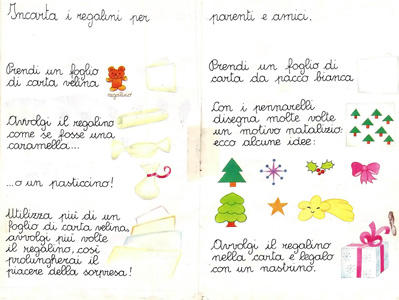 Incarta i regalini per parenti e amici.
Prendi un foglio
di carta velina
regalino
Avvolgi il regalino
come se fosse una
caramella....
...o un pasticcino!
Utilizza più di un
foglio di carta velina,
avvolgi più volte
il regalino, così
prolungherai il
piacere della sorpresa!
Prendi un foglio di
carta da pacco bianca
Con i pennarelli
disegna molte volte
un motivo natalizio:
ecco alcune idee:
Avvolgi il regalino
nella carta e legalo
con un nastrino.